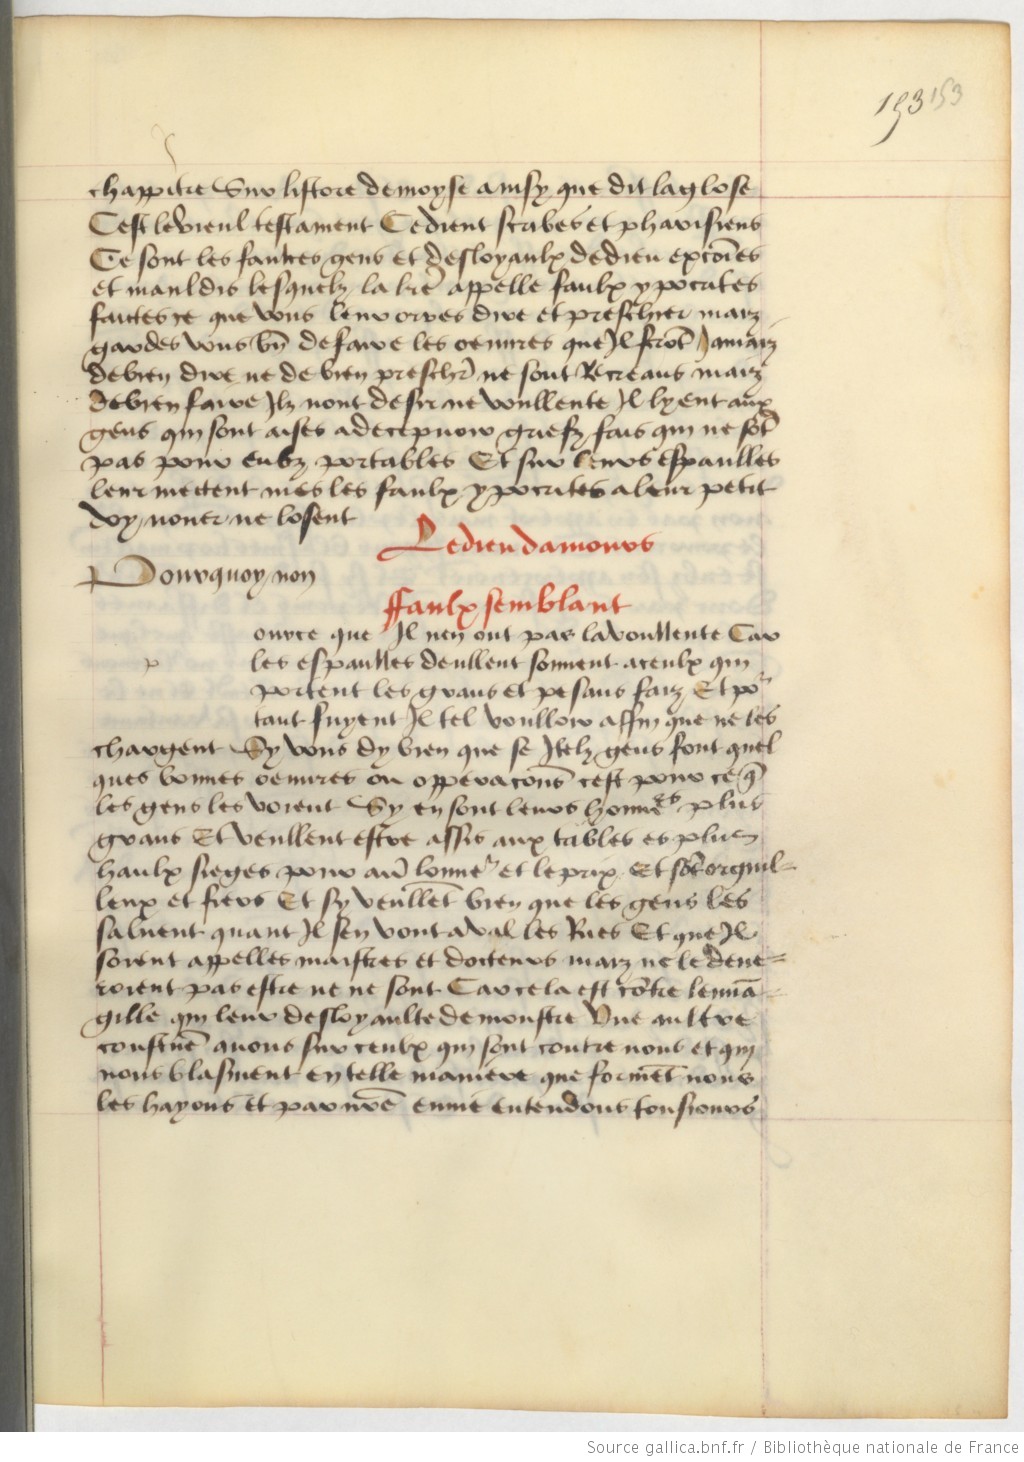 153 153
chappitre Sur listore de moyse ainsy que dit la glose
Cest le vieul testament Ce dient scribes et pharisiens
Ce sont les faulces gens et desloyaulx de dieu excōies
et mauldis lesquelz la lrē appelle faulx ypocrites
faictes ce que vous leur orres dire et preschier maiz
gardes vous bn̄ de faire les oeuures que Il ferōt Jamaiz
de bien dire ne de bien preschr̄ ne sont Recreans maiz
de bien faire Ilz nont desir ne voullente Il lyent aux
gens qui sont aises a decepuoir griefz fais qui ne sōt
pas pour eulx portables Et sur leurs espaulles
leur mectent mes les faulx ypocrites a leur petit
doy mouer ne losent
Le dieu damours
Pourquoy non
Faulx semblant
p
ource que Il nen ont pas la voullente Car
les espaulles deullent souuent a ceulx qui
portent les grans et pesans faiz Et por
tant fuyent Il tel voulloir affin que ne les
chargent Sy vous dy bien que se Itelz gens font quel
ques bonnes oeuures ou opperacons̄ cest pour ce q̄
les gens les voient Sy en sont leurs honnes plus
grans Et veullent estre assis aux tables es plus
haulx sieges pour au̅ lonner et le prix Et sōt orguil-
leux et fiers Et sy veullēt bien que les gens les
saluent quant Il sen vont aval les Rues Et que Il
soient appelles maistres et docteurs maiz ne le deue-
roient pas estre ne ne sont Car cela est cōtre leuuā-
gille qui leur desloyaulte demonstre Une aultre
coustūe auons sur ceulx qui sont contre nous et qui
nous blasment en telle maniere que formēt nous
les hayons et par nrē enuie entendons tousiours
Source gallica.bnf.fr / Bibliothèque nationale de France